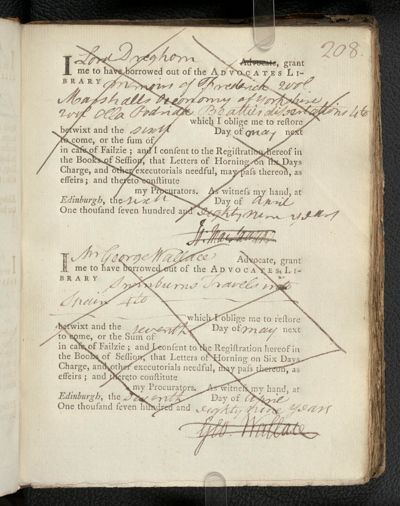 208.
I Lord Dreghorn Advocate, grant
me to have borrowed out of the ADVOCATES LI-
BRARY of Frederick 2 vol
Marshalls Oeconomy of Yorkshire
2 vol Olla Podrida Beatties dissertations 4to
which I oblige me to restore
betwixt and the sixth Day of May next
to come, or the sum of
in case of Failzie; and I consent to the Registration hereof in
the Books of Session, that Letters of Horning on six Days
Charge, and other executorials needful, may pass thereon, as
effeirs; and thereto constitute
my Procurators. As witness my hand, at
Edinburgh, the sixth Day of April
One thousand seven hundred and eighty nine years
I Mr George Wallace Advocate, grant
me to have borrowed out of the ADVOCATES LI-
BRARY Swinburns Travels into
Spain 4to
which I oblige me to restore
betwixt and the seventh Day of May next
to come, or the Sum of
in case of Failzie; and I consent to the Registration hereof in
the Books of Session, that Letters of Horning on Six Days
Charge, and other executorials needful, may pass thereon, as
effeirs; and thereto constitute
my Procurators. As witness my hand, at
Edinburgh, the Seventh Day of April
One thousand seven hundred and eighty nine years
Geo. Wallace